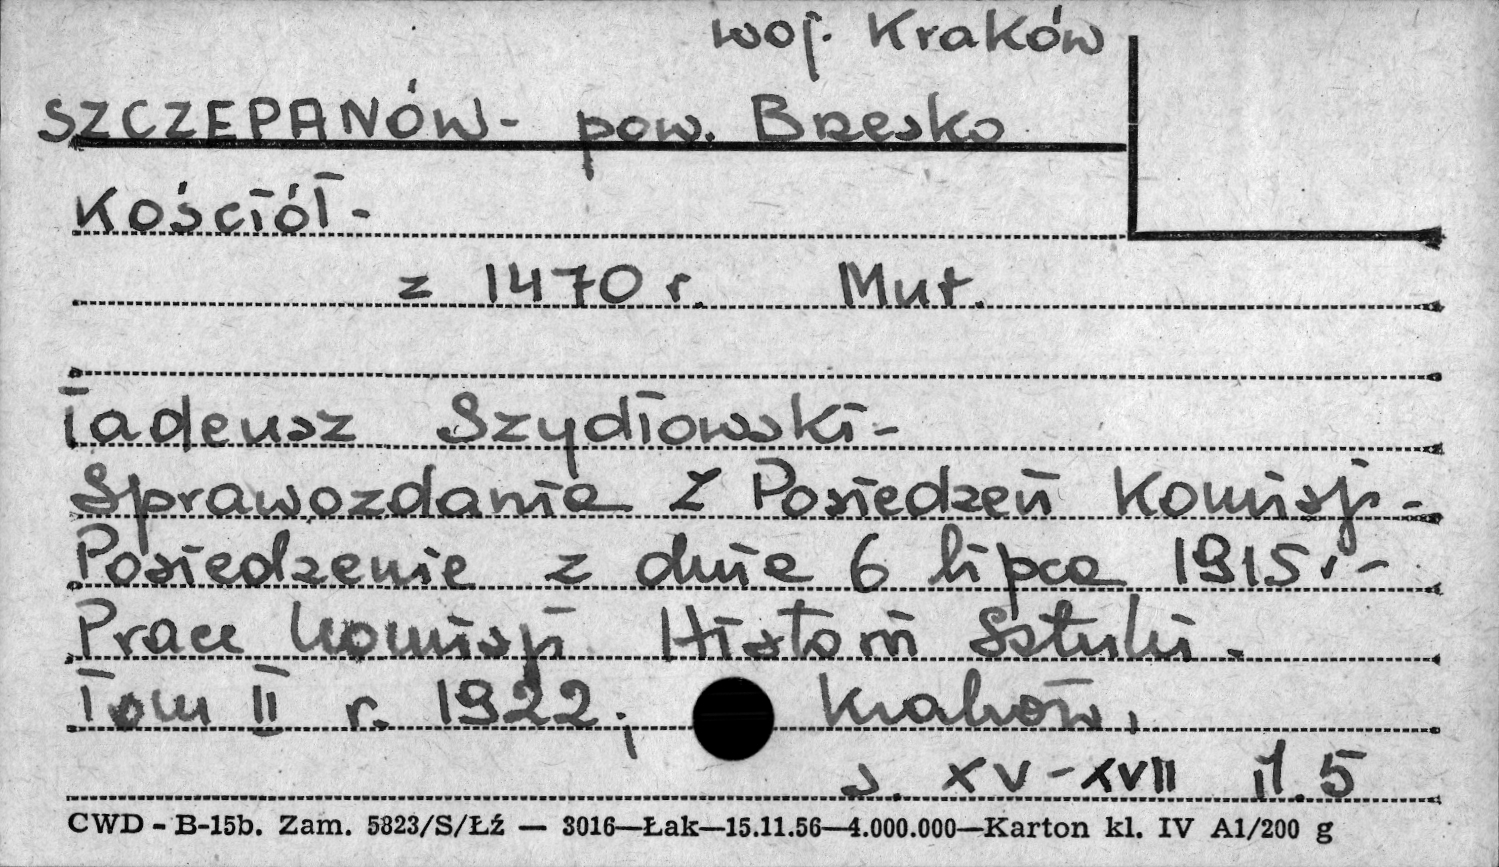 woj. Kraków
SZCZEPANÓW- pow. Brzesko
Kościół-
z 1470 r. Mur.
Tadeusz Szydłowski-
Sprawozdania z Posiedzeń Komisji-
Posiedzenie z dnia 6 lipca 1915 r-
Prace Komisji Historii Sztuki.
Tom II r. 1922, Kraków,
s. XV-XVII il. 5
CWD - B-15b. Zam. 5823/S/Łź — 3016—Łak—15.11.56—4.000.000—Karton kl. IV A1/200 g